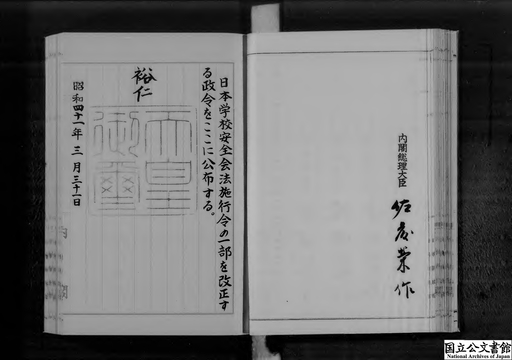 日本学校安全会法施行令の一部を改正す
る政令をここに公布する。
裕仁
天皇
御璽
昭和四十一年三月三十一日
内閣総理大臣
佐藤栄作
国立公文書館
National Archives of Japan